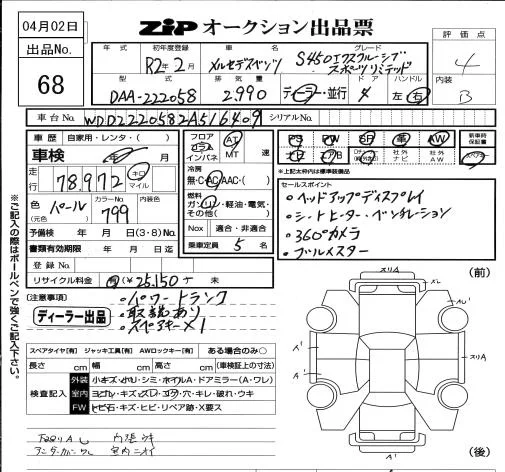 04月02日
ZIP オークション出品票
出品No.
68
年式 初年度登録 車名 グレード
R2年2月 メルセデスベンツ S450エクスクルーシブ
スポーツリミテッド
評価点
4
内装
B
型式 排気量 ドア ハンドル
DAA-222058 2,990 ディーラー・並行 4 左・右
車台No. WDD2220582A516409 シリアルNo.
車歴 自家用・レンタ・( )
車検 年 月
走行 78,972 キロ マイル
色 (元色) パール カラーNo. 799 内装色
予備検 年 月 日(3・8)Mo.
書類有効期限 年 月 日迄
登録No.
リサイクル料金 済 ¥25,150 未
フロア コラム インパネ AT MT 速
冷房 無・C・AC・AAC・( )
燃料 ガソリン・軽油・電気・その他( )
Nox 適合・非適合
乗車定員 5 名
PS PW SR 革 AW
ナビ TV
エアB
新車時保証書
*上記太枠内は標準装備品
セールスポイント
・ヘッドアップディスプレイ
・シートヒーター・ベンチレーション
・360°カメラ
・ブルメスター
(注意事項)
・パワートランク
・取説あり
・スペアキー×1
ディーラー出品
※ご記入の際はボールペンで強くご記入下さい。
スペアタイヤ【有】 ジャッキ工具【有】 AWロックキー【有】 ある場合のみ○
長さ cm 幅 cm 高さ cm (車検証上の寸法)
検査記入
外装 小キズ・小ハリ・シミ・ホイルA・ドアミラー(A・ワレ)
室内 ヨゴレ・キズ・スレ・コゲ・穴・キレ・破れ・ウキ
FW トビ石・キズ・ヒビ・リペア跡・X要ス
下回りA 内張ウキ
アンダーカバーワレ 室内ニオイ
(前)
スリA
メレ
AU'
A'
スリA
A'
(後)